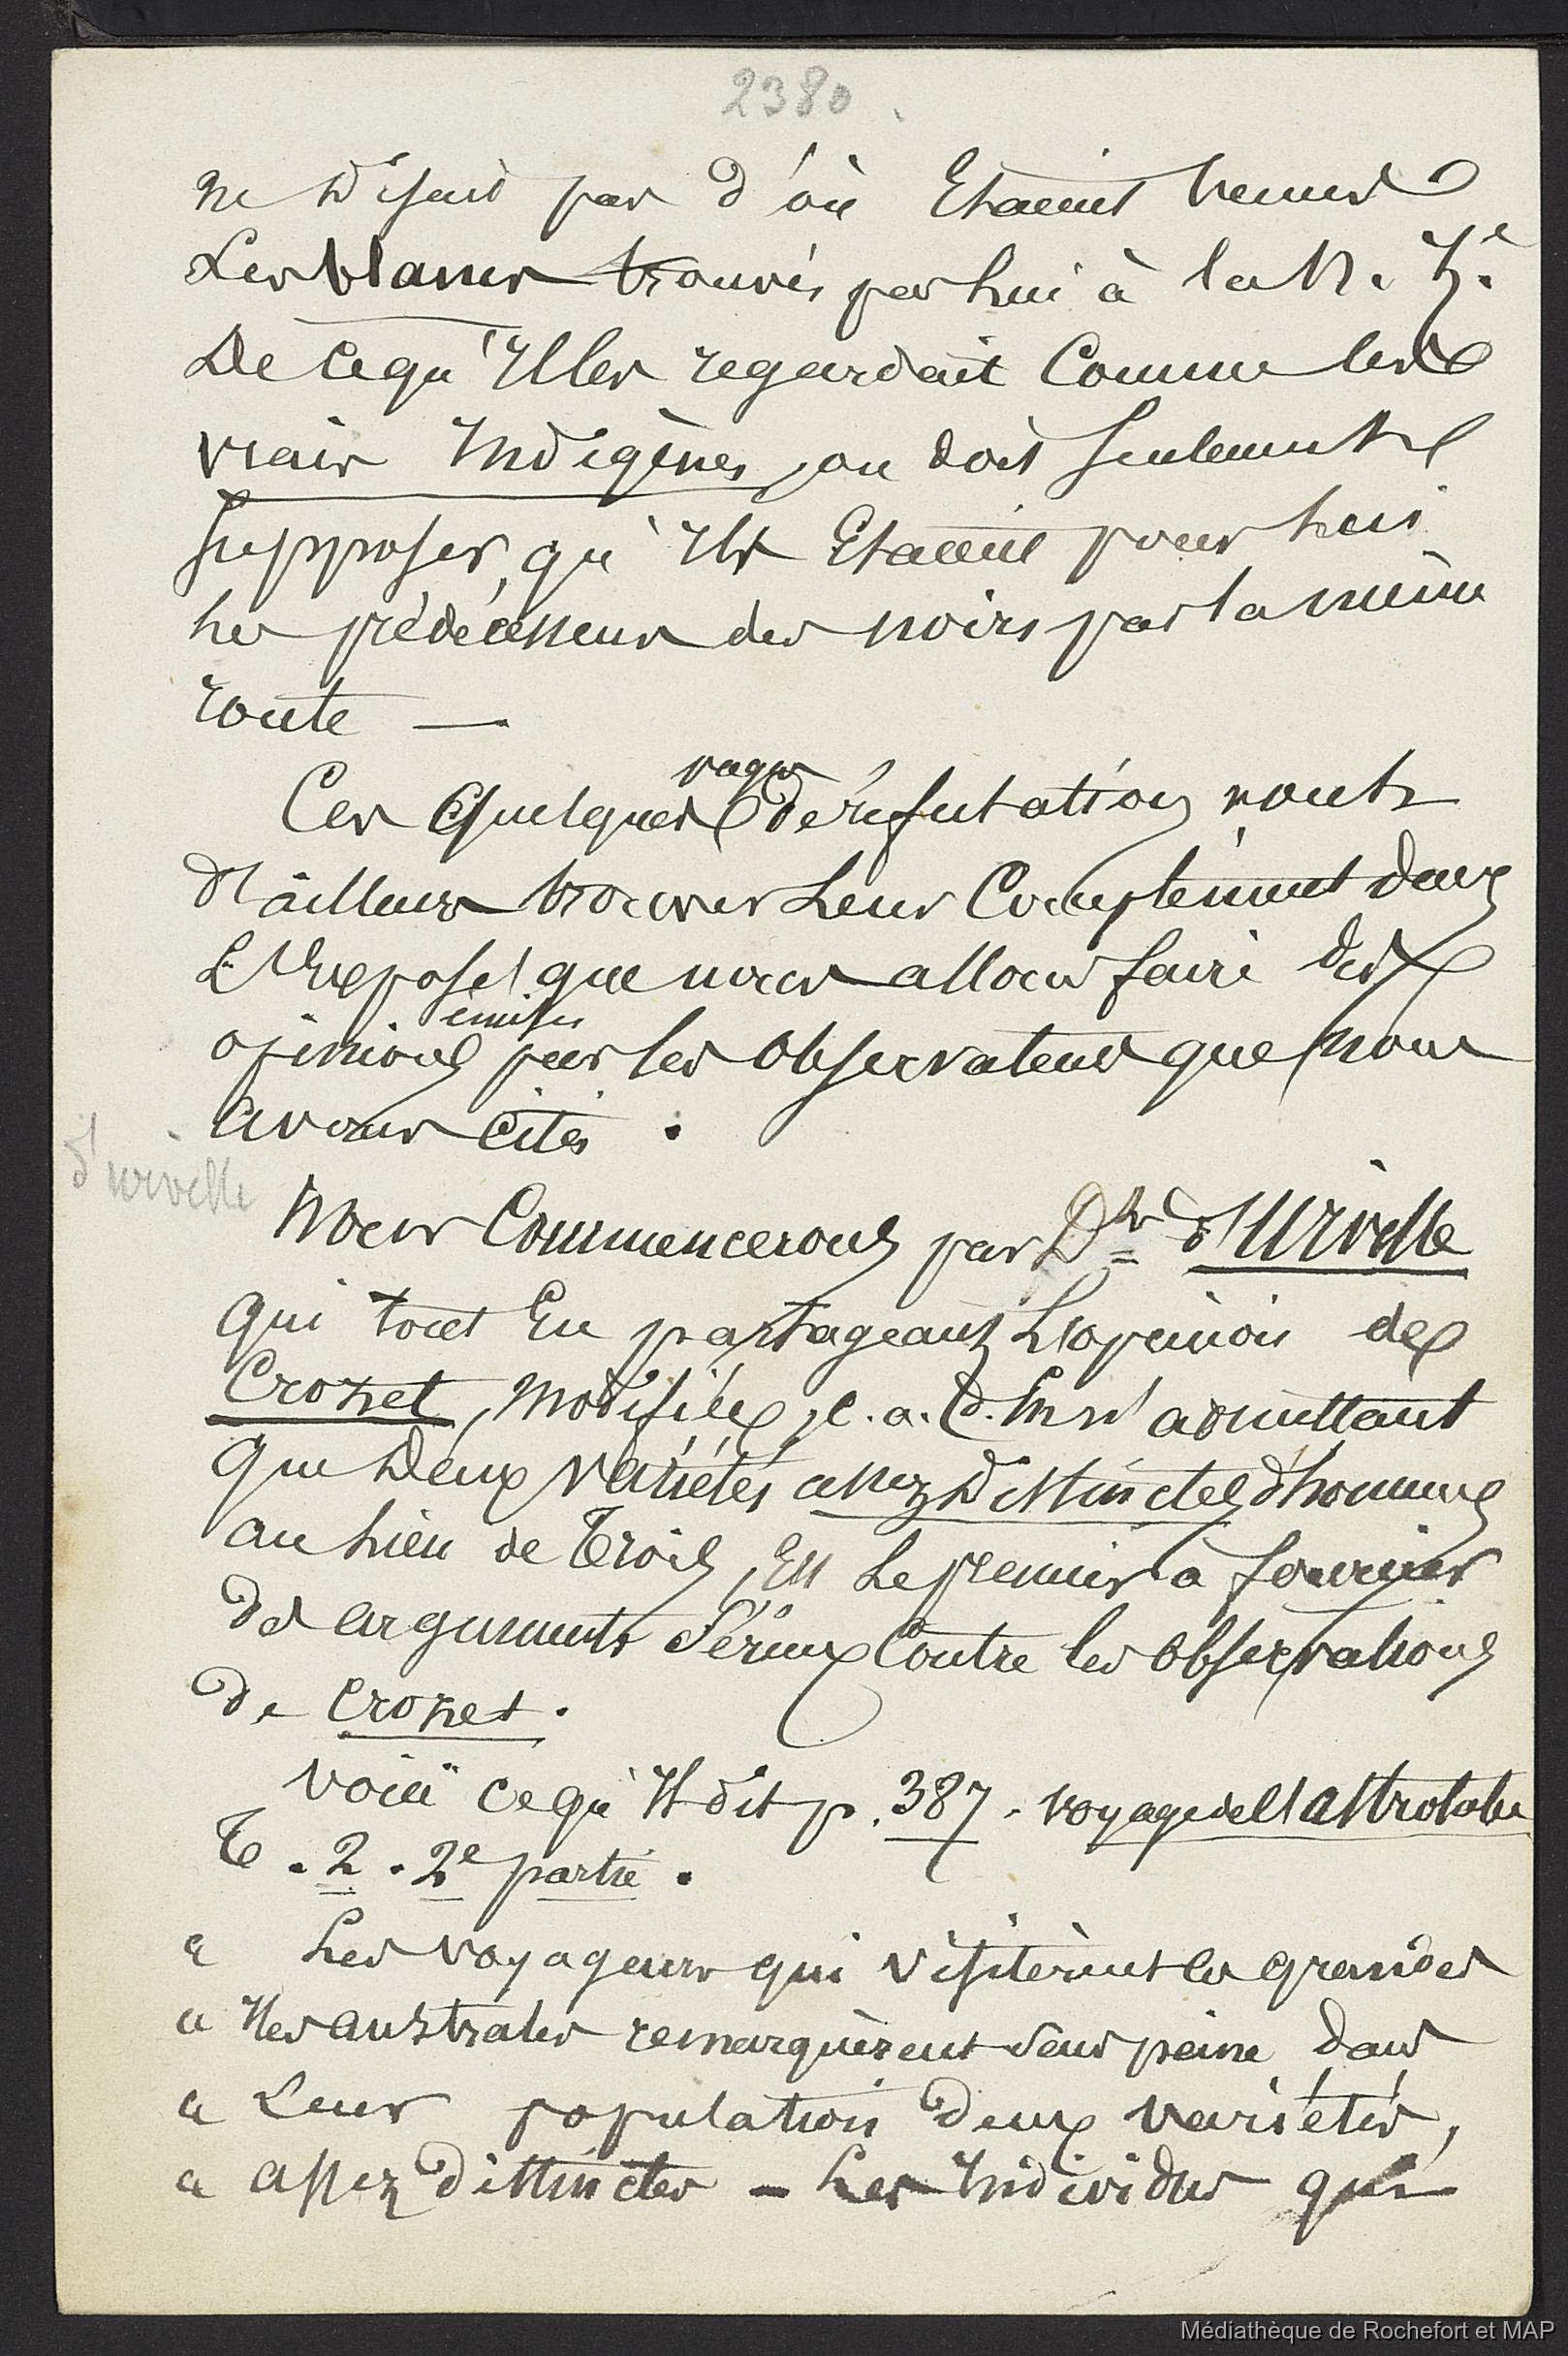 2380
ne disait pas d'où Etaient venus
Les blancs trouvés par lui à la N. Z.e
De ce qu'Il les regardait Comme les
vrais Indigènes, on doit seulement
supposer, qu'Ils Etaient pour lui
les prédécesseurs des noirs par la même
route —
vagues
Ces Quelques de réfutation vont
d'ailleurs trouver Leur Complément dans
L'Exposé que nous allons faire des
émises
opinions par les observateurs que nous
avons cités .
d'urville
Nous Commencerons par Dt d'Urville
qui tout En partageant L'opinion de
Crozet, modifiée, c. a. d. En n'admettant
que Deux variétés assez Distinctes d'hommes
au lieu de Trois, Est Le premier à fournir
des arguments sérieux Contre les observations
de Crozet.
Voici ce qu'Il dit p. 387. voyage de l'astrolabe
T. 2. 2e partie.
« Les voyageurs qui visitèrent les grandes
« Iles australes remarquèrent sans peine dans
« Leur population deux variétés,
« assez distinctes - Les Individus qui
Médiathèque de Rochefort et MAP